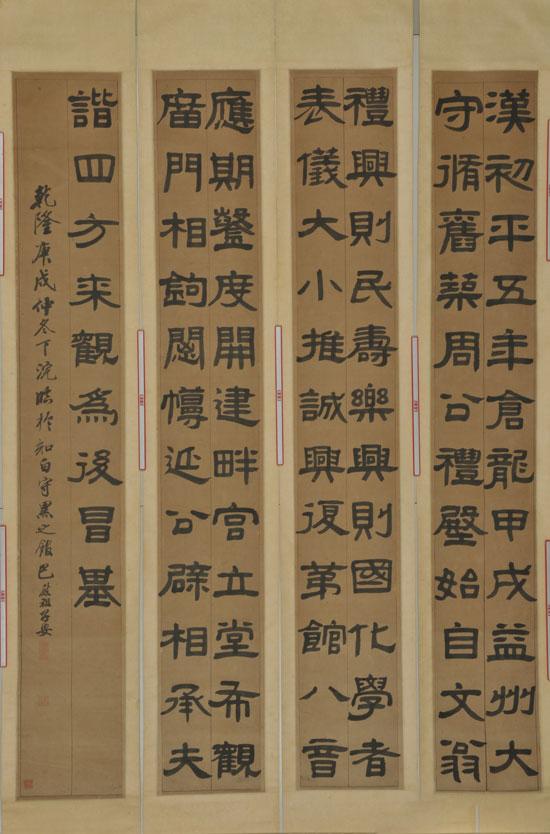 漢初平五年倉龍甲戌益州大
守脩舊築周公禮壂始自文翁
禮興則民壽樂興則國化學者
表儀大小推誠興復第館八音
應期鑿度開建畔宮立堂布觀
庿門相鉤閟延公辟相承夫
諧四方來觀為後冒基
乾隆庚戌仲冬下浣臨於知白守黑之館巴慰祖子安